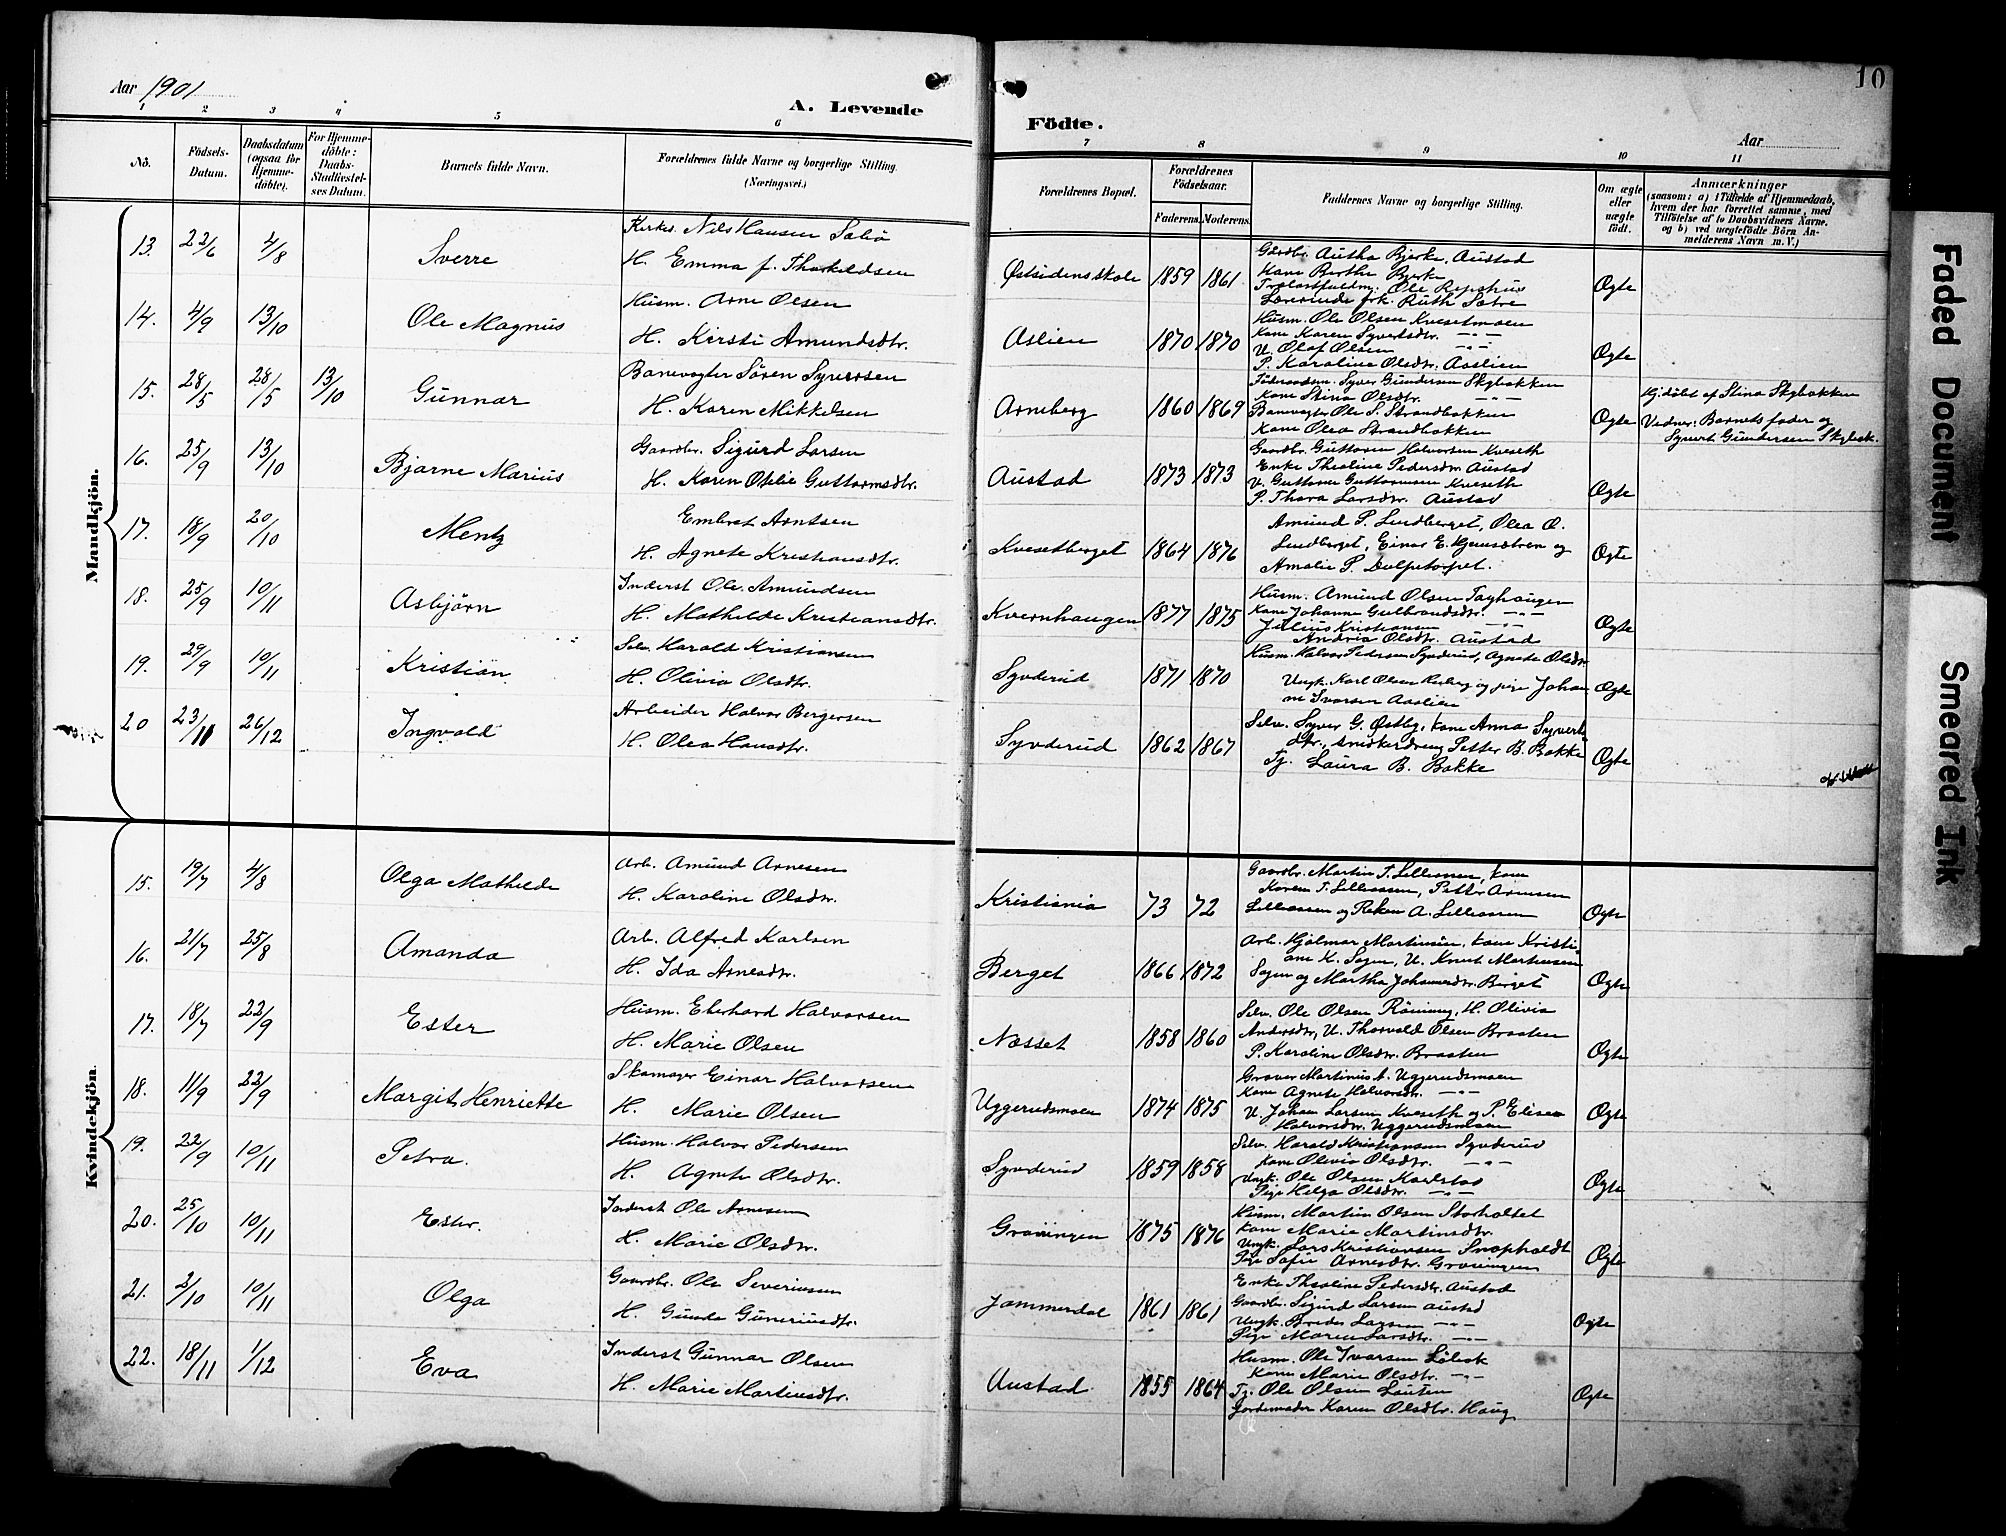 Aar 1901
A. Levende
1 2 3 4 5 6
Nô.
Födsels-Datum.
Daabsdatum (ogsaa for Hjemme-döbte).
For Hjemme-döbte: Daabs-Stadfæstel-ses Datum.
Barnets fulde Navn.
Forældrenes fulde Navne og borgerlige Stilling. (Næringsvei.)
Mandkjön.
13. 22/6 4/8 Sverre
Kirkes. Nils Hansen
H. Emma f. Thorkeldsen
14. 4/9 13/10 Ole Magnus
Husm. Arne Olsen
H. Kirsti Amundsdtr.
15. 28/5 28/5 13/10 Gunnar
Banevogter Sören Syversen
H. Karen Mikkelsen
16. 25/9 13/10 Bjarne Marius
Gaardbr. Sigurd Larsen
H. Karen Otelie Guttormsdtr.
17. 18/9 20/10 Mentz
Embret Arntsen
H. Agnete Kristiansdtr.
18. 25/9 10/11 Asbjörn
Inderst Ole Amundsen
H. Mathilde Kristiansdtr.
19. 29/9 10/11 Kristian
Selv. Harald Kristiansen
H. Olivia Olsdtr.
20 23/11 26/12 Ingvald
Arbeider Halvor Bergersen
H. Olea Hansdtr.
Kvindekjön.
15. 19/7 4/8 Olga Mathilde
Arb. Amund Arnesen
H. Karoline Olsdtr.
16. 21/7 25/8 Amanda
Arb. Alfred Karlsen
H. Ida Arnesdtr.
17. 18/7 22/9 Ester
Husm. Eberhard Halvorsen
H. Marie Olsen
18. 11/9 22/9 Margit Henriette
Skomager Einar Halvorsen
H. Marie Olsen
19. 22/9 10/11 Petra.
Husm. Halvor Pedersen
H. Agnete Olsdtr.
20. 25/10 10/11 Ester.
Inderst Ole Arnesen
H. Marie Olsdtr.
21. 2/10 10/11 Olga
Gaardbr. Ole Severinsen
H. Gunda Guneriusdtr.
22. 18/11 1/12 Eva
Inderst Gunnar Olsen
H. Marie Martinsdtr.
10
Födte.
Aar
7 8 9 10 11
Forældrenes Bopæl.
Forældrenes Födselsaar.
Faderens. Moderens.
Faddernes Navne og borgerlige Stilling.
Om ægte eller uægte födt.
Anmærkninger
(saasom: a) i Tilfælde af Hjemmedaab, hvem der har forrettet samme, med Tilföielse af to Daabsvidners Navne. og b) ved uægtefödte Börn An-melderens Navn m. V.)
Østsidens skole 1859 1861
Gårdbr. Bjerke, Austad
Kone Berthe Bjerke
Ole
Lærerinde frk. Ruth Sætre
Ægte
Aslien 1870 1870
Husm. Ole Olsen Kvesetmoen
Kone Karen Syvertsdtr. -"-
U. Olaf Olsen -"-
P. Karoline Olsdtr. Aaslien
Ægte
Arneberg 1860 1869
Föderaadsm. Syver Gundersen Skybakken
Kone Stina Olsdtr. -"-
Banevogter Ole S. Strandbakken
Kone Olea Strandbakken
Ægte
Hj. döbt af Stina Skybakken
Vidner: Barnets fader og
Syvert Gundersen Skybak.
Austad 1873 1873
Gaardbr. Guttorm Halvorsen Kveseth
Enke Theoline Pedersdtr. Austad
U. Guttorm Guttormsen Kveseth
P. Thora Larsdtr. Austad
Ægte
Kvesetberget 1864 1876
Amund P. Lundberget, Olea O.
Lundberget, Einar E. og
Amalie P.
Ægte
Kvernhaugen 1877 1875
Husm. Amund Olsen
Kone Johanne Gulbrandsdtr. -"-
Julius Kristiansen -"-
Andrea Olsdtr. Austad
Ægte
Synderud 1871 1870
Husm. Halvor Pedersen Synderud, Agnete Olsdtr
Ungk. Karl Olsen og pige Johan
ne Ivarsen Aaslien
Ægte
Synderud 1862 1867
Selv. Syver G. Østby, kone Anna Syverts
dtr., snedkerdreng Petter B. Bakke
Tj. Laura B. Bakke
Ægte
Kristiania 73 72
Gaardbr. Martin T. Lilleaasen, kone
Karen T. Lilleaasen, Petter Arnesen
Lilleaasen og A. Lilleaasen
Ægte
Berget 1866 1872
Arb. Hjalmar Martinsen, kone Kristi-
ane K. Sagen, U. Knut Martinsen
Sagen og Martha Johannesdtr. Berget
Ægte
Næsset 1858 1860
Selv. Ole Olsen Röining, H. Olivia
Andersdtr, U. Thorvald Olsen Braaten
P. Karoline Olsdtr. Braaten
Ægte
Uggerudsmoen 1874 1875
Graver Martinus Uggerudsmoen
Kone Agnete Halvorsdtr. -"-
U. Johan Larsen Kveseth og P. Elise
Halvorsdtr. Uggerudsmoen
Ægte
Synderud 1859 1858
Selv. Harald Kristiansen Synderud
Kone Olivia Olsdtr. -"-
Ungk. Ole Olsen Karlstad
Pige Helga Olsdtr. -"-
Ægte
Gravingen 1875 1876
Husm. Martin Olsen Storholtet
Kone Marie Martinsdtr.
Ungk. Lars Kristiansen Snapholdt
Pige Sofie Arnesdtr. Gravingen
Ægte
Jammerdal 1861 1861
Enke Theoline Pedersdtr. Austad
Gaardbr. Sigurd Larsen Austad
Ungk. Larsen -"-
Pige Maren Larsdtr. -"-
Ægte
Austad 1855 1864
Husm. Ole Ivarsen
Kone Marie Olsdtr. -"-
Tj. Ole Olsen
Jordemoder Karen Olsdtr. Haug
Ægte
Faded Document
Smeared Ink